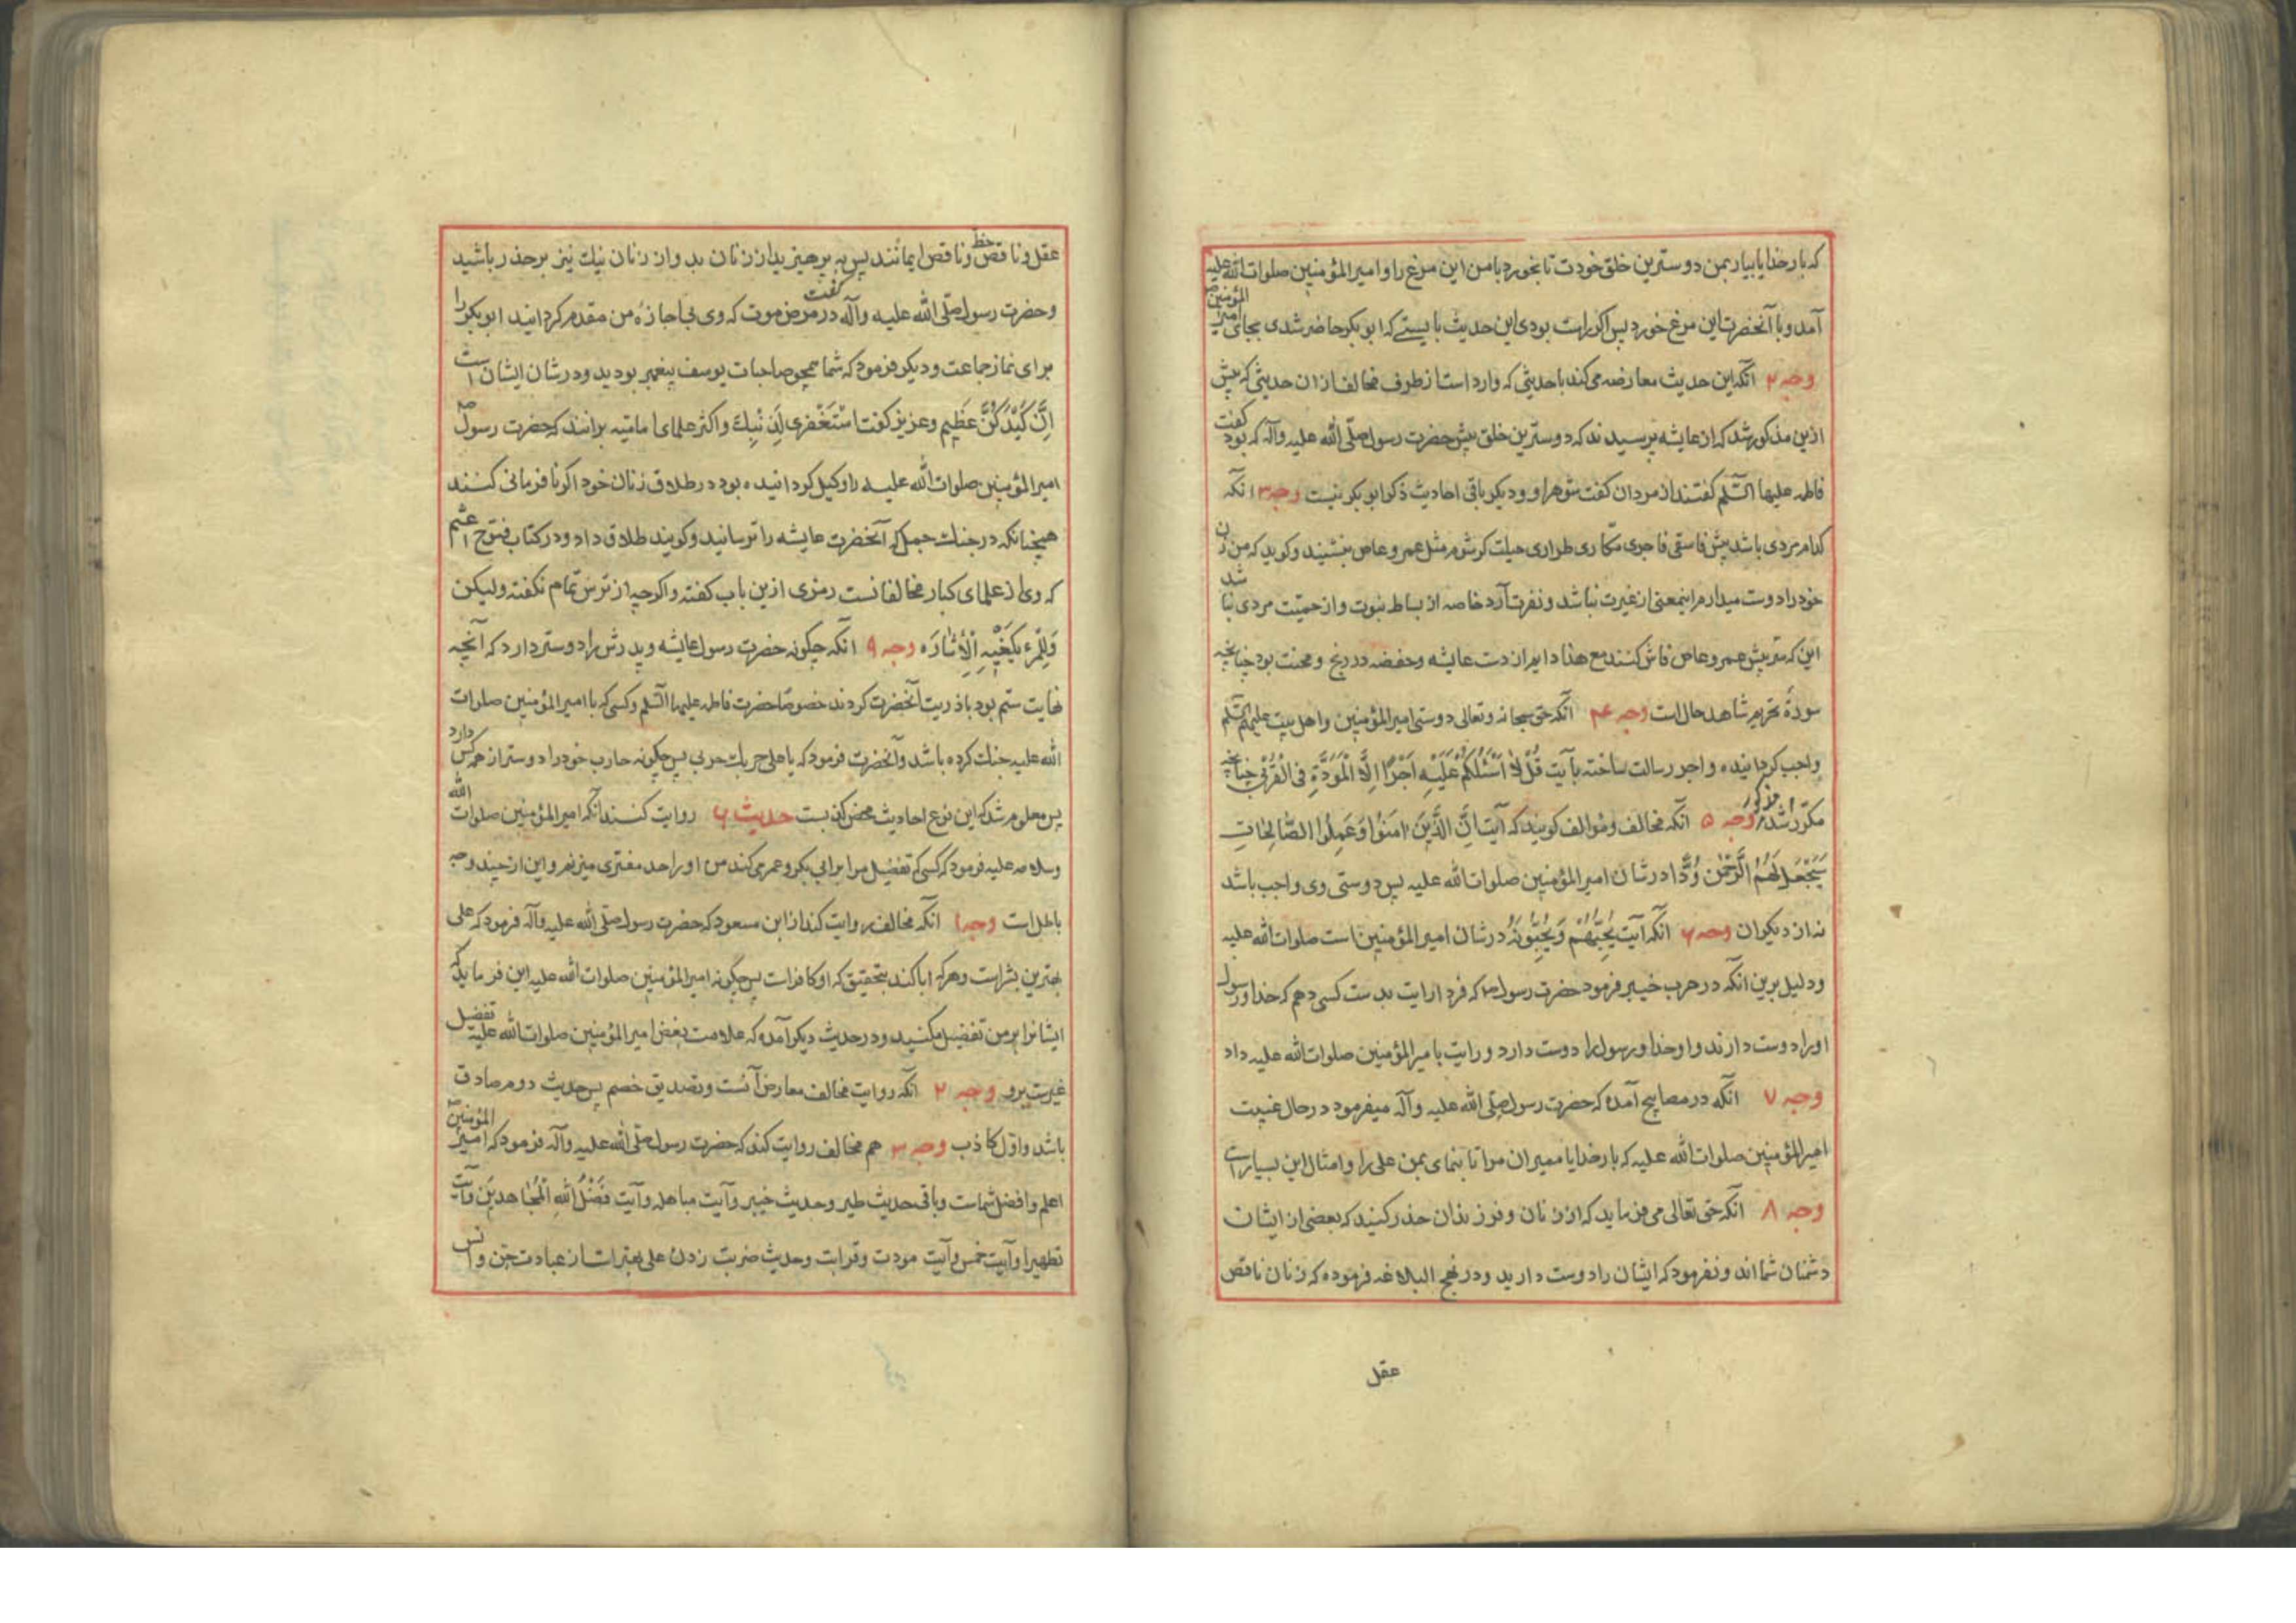 که بار خدایا بیار بمن دوسترین خلق خودت تا بخورد با من این مرغ را و امیر المؤمنین صلوات الله علیه
آمد و با آنحضرت این مرغ خورد پس اکر راست بودی این حدیث بایستے که ابو بکر حاضر شدی بجای امیر المؤمنین ص
وجه ۲ انکه این حدیث معارضه می کند با حدیثی که وارد است از طرف مخالف از ان حدیثی که پیش
ازین مذکور شد که از عایشه پرسیدند که دوسترین خلق پیش حضرت رسول صلّی الله علیه وآله که بود کفت
فاطمه علیها السّلم کفتند از مردان کفت شوهر او و دیکر باقی احادیث ذکر ابو بکر نیست وجه ۳ انکه
کدام مردی باشد پیش فاسقی فاجری مکّاری طراری حیلت کر شوم مثل عمر و عاص بنشیند و کوید که من زن
خود را دوست میدارم اینمعنی از غیرت نباشد و نفرت آرد خاصه از بساط نبوت و از حمیّت مردی نباشد
این که سرّ پیش عمر و عاص فاش کنند مع هذا دایم از دست عایشه و حفصه در رنج و محنت بود چنانچه
سورهٔ تحریم شاهد حال است وجه ۴ انکه حق سبحانه وتعالی دوستی امیر المؤمنین و اهل بیت علیهم السّلم
واجب کردانیده و اجر رسالت ساخته بآیت قُلْ لاٰ اَسْئَلُکُمْ عَلَیْهِ اَجْرًا اِلَّا الْمَوَدَّةَ فِی الْقُرْبٰی چنانچه
مکرّر مذکور شد وجه ۵ انکه مخالف و مؤالف کویند که آیت اِنَّ الَّذینَ اٰمَنُوا وَعَمِلُوا الصّٰالِحٰاتِ
سَیَجْعَلُ لَهُمُ الرَّحْمٰنُ وُدًّا در شان امیر المؤمنین صلوات الله علیه پس دوستی وی واجب باشد
نه از دیکران وجه ۶ انکه آیت یُحِبُّهُمْ وَیُحِبُّونَهُ در شان امیر المؤمنین است صلوات الله علیه
ودلیل برین انکه در حرب خیبر فرمود حضرت رسول ص که فردا رایت بدست کسی دهم که خدا و رسول
او را دوست دارند و او خدا و رسول را دوست دارد و رایت بامیر المؤمنین صلوات الله علیه داد
وجه ۷ انکه در مصابیح آمده که حضرت رسول صلّی الله علیه وآله میفرمود در حال غیبت
امیر المؤمنین صلوات الله علیه که بار خدایا ممیران مرا تا بنمای بمن علی را و امثال این بسیار است
وجه ۸ انکه حق تعالی می فرماید که از زنان و فرزندان حذر کنید که بعضی از ایشان
دشمنان شما اند و نفرمود که ایشان را دوست دارید و در نهج البلاغه فرموده که زنان ناقص
عقل
عقل و ناقص حظ و ناقص ایمانند پس بپرهیزید از زنان بد و از زنان نیك نیز بر حذر باشید
وحضرت رسول صلّی الله علیه وآله در مرض موت کفت که وی بی اجازهٔ من مقدم کردانید ابو بکر را
برای نماز جماعت و دیکر فرمود که شما همچو صاحبات یوسف پیغمبر بودید و در شان ایشان است
اِنَّ کَیْدَکُنَّ عَظیم وعزیز کفت اسْتَغْفِری لِذَنْبِكِ و اکثر علمای امامیّه برانند که حضرت رسول ص
امیر المؤمنین صلوات الله علیه را وکیل کردانیده بود در طلاق زنان خود اکر نافرمانی کنند
همچنانکه در جنك جمل که آنحضرت عایشه را ترسانید و کویند طلاق داد و در کتاب فتوح اعثم
که وی از علمای کبار مخالفانست رمزی ازین باب کفته و اکرچه از ترس تمام نکفته ولیکن
وَلِلْمَرْءِ یَکْفیهِ الْاِشٰارَه وجه ۹ انکه چکونه حضرت رسول عایشه و پدرش را دوستر دارد که آنچه
نهایت ستم بود با ذریت آنحضرت کردند خصوصًا حضرت فاطمه علیها السّلم وکسی که با امیر المؤمنین صلوات
الله علیه جنك کرده باشد وآنحضرت فرمود که یا علی حربك حربی پس چکونه محارب خود را دوستر از همه کس دارد
پس معلوم شد که این نوع احادیث محض کذبست حدیث ۶ روایت کنند انکه امیر المؤمنین صلوات الله
وسلامه علیه فرمود که کسی که تفضیل مرا بر ابی بکر و عمر می کند من او را حد مفتری میزنم و این از چند وجه
باطل است وجه ۱ انکه مخالف روایت کند از ابن مسعود که حضرت رسول صلّی الله علیه وآله فرمود که علی
بهترین بشر است وهر که ابا کند بتحقیق که او کافر است پس چکونه امیر المؤمنین صلوات الله علیه این فرماید که
ایشانرا بر من تفضیل مکنید و در حدیث دیکر آمده که علامت بغض امیر المؤمنین صلوات الله علیه تفضیل
غیرست برو وجه ۲ انکه روایت مخالف معارض آنست و تصدیق خصم پس حدیث دوم صادق
باشد و اوّل کاذب وجه ۳ هم مخالف روایت کند که حضرت رسول صلّی الله علیه وآله فرمود که امیر المؤمنین ص
اعلم و افضل شماست و باقی حدیث طیر و حدیث خیبر وآیت مباهله وآیت فَضَّلَ اللّٰهُ الْمُجٰاهِدینَ وآیت
تطهیرا وآیت خمس وآیت مودت و قرابت وحدیث ضربت زدن علی بهتر است از عبادت جن و انس